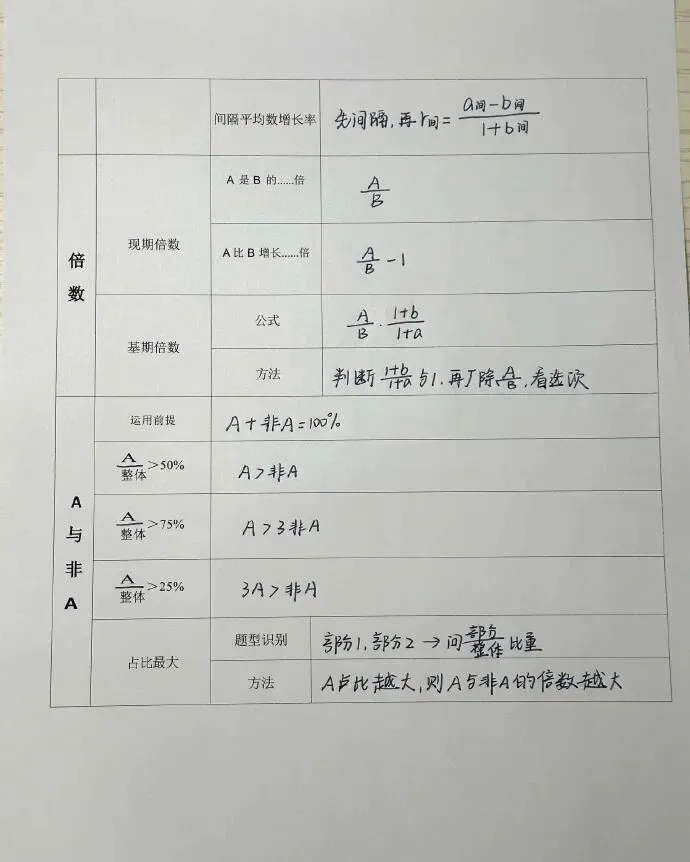 间隔平均数增长率 先间隔,再r间=(a间-b间)/(1+b间)
倍数
现期倍数
A 是 B 的......倍 A/B
A比B增长......倍 A/B-1
基期倍数
公式 A/B·(1+b)/(1+a)
方法 判断(1+b)/(1+a)与1,再厂除A/B,看选项
A与非A
运用前提 A+非A=100%
A/整体>50% A>非A
A/整体>75% A>3非A
A/整体>25% 3A>非A
占比最大
题型识别 部分1,部分2→问部分/整体比重
方法 A占比越大,则A与非A的倍数越大